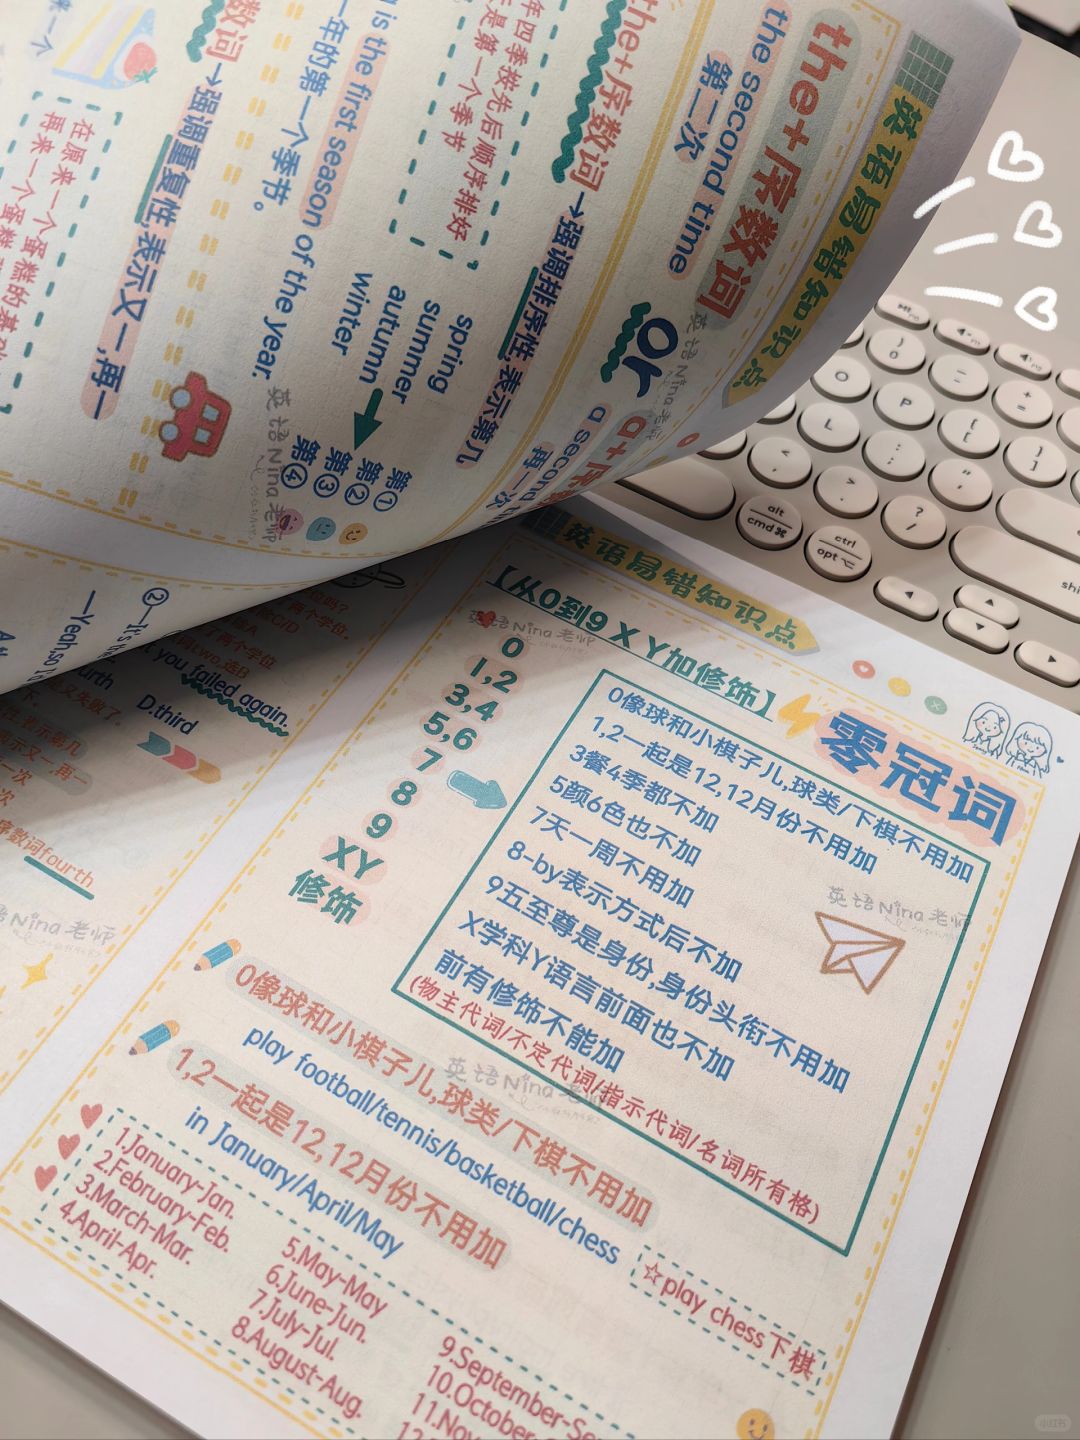 英语易错知识点
the+序数词
the second time
第二次
Or
a second
再一次
the+序数词→强调排序性,表示第几
年四季按先后顺序排好
是第一个季节
is the first season of the year.
一年的第一个季节。
spring
summer
autumn
winter
第①
第②
第③
第④
数词→强调重复性,表示又一,再一
在原来一个蛋糕的基础
再来一个蛋糕
英语Nina老师
you failed again.
D.third
序数词fourth
英语Nina老师
英语易错知识点
【从0到9 X Y加修饰】
零冠词
英语Nina老师
0
1,2
3,4
5,6
7
8
9
XY
修饰
0像球和小棋子儿,球类/下棋不用加
1,2一起是12,12月份不用加
3餐4季都不加
5颜6色也不加
7天一周不用加
8-by表示方式后不加
9五至尊是身份,身份头衔不用加
X学科Y语言前面也不加
前有修饰不能加
(物主代词/不定代词/指示代词/名词所有格)
英语Nina老师
0像球和小棋子儿,球类/下棋不用加
play football/tennis/basketball/chess
英语Nina老师
☆play chess下棋
1,2一起是12,12月份不用加
in January/April/May
1.January-Jan.
2.February-Feb.
3.March-Mar.
4.April-Apr.
5.May-May
6.June-Jun.
7.July-Jul.
8.August-Aug.
9.September-Se
10.October-
11.Nov
alt
cmd ⌘
ctrl
opt ⌥
shi
O
P
L
小红书